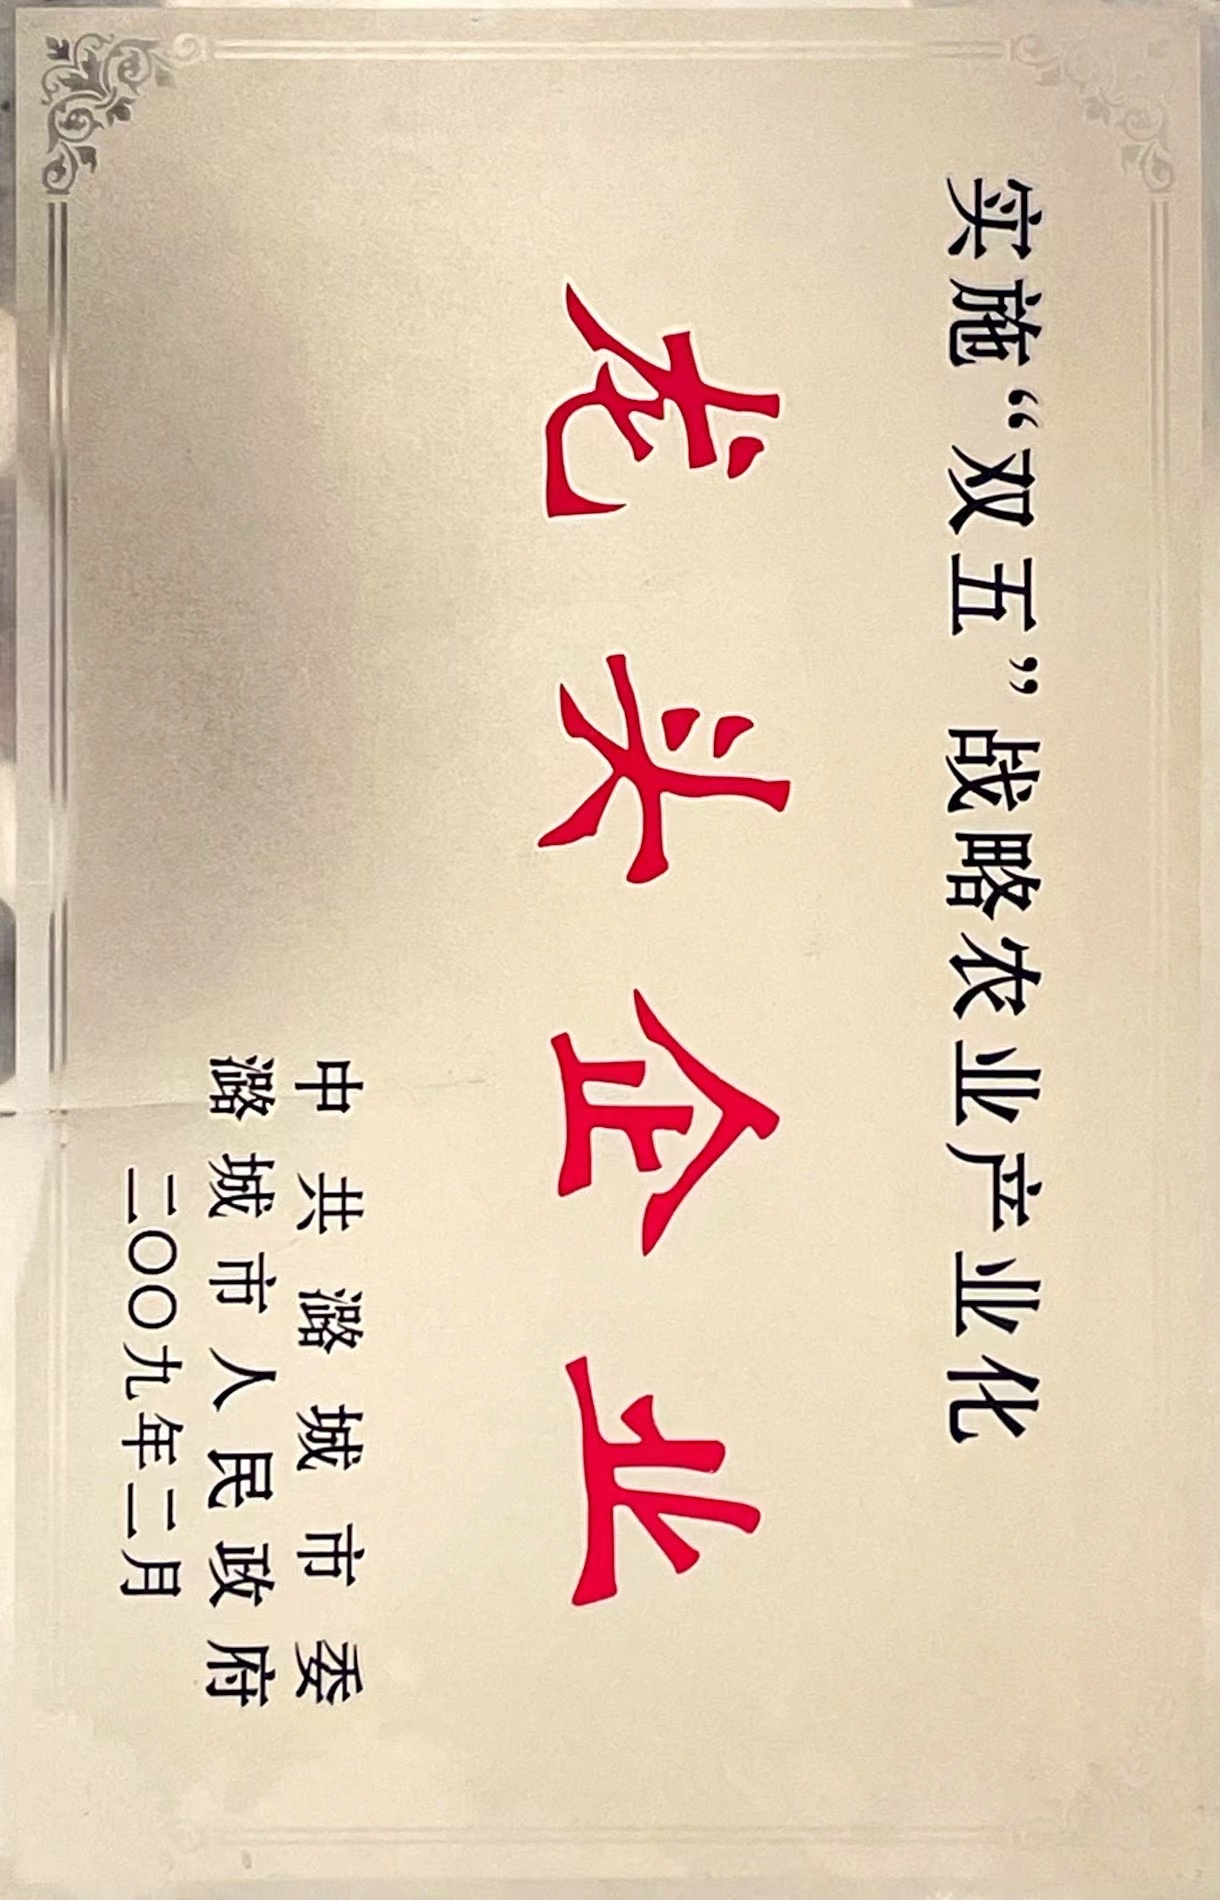 实施“双五”战略农业产业化
龙头企业
中共潞城市委
潞城市人民政府
二〇〇九年二月